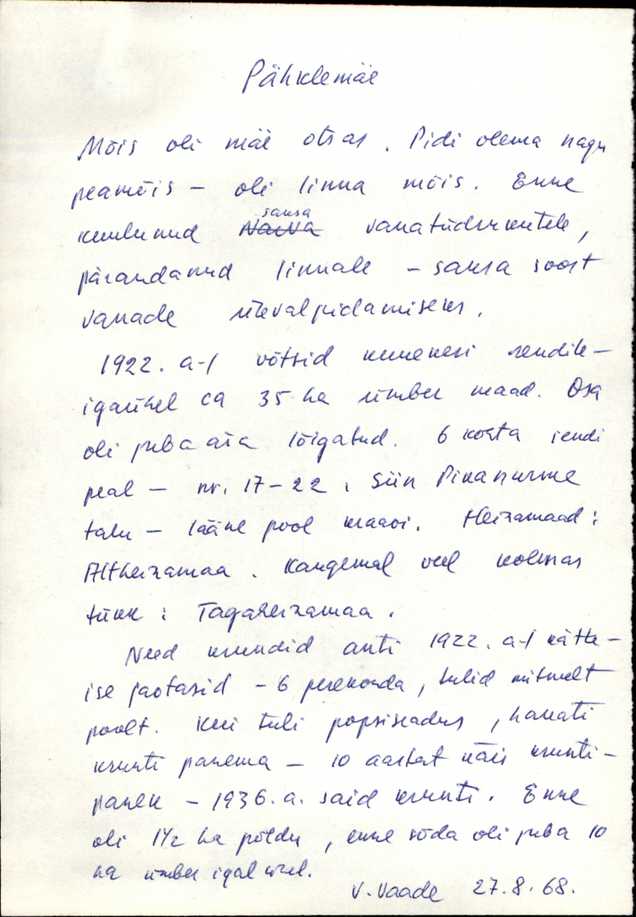 Pähklemäe
Mõis oli mäe otsas. Pidi olema nagu
peamõis – oli linna mõis. Enne
kuulunud saksa vanatüdrukutele,
pärandanud linnale – saksa soost
vanade ülevalpidamiseks.
1922. a-l võtsid inimesi rendile –
igaühel ca 35 ha ümber maad. Osa
oli juba ära lõigatud. 6 kohta rendi
peal – nr. 17–22. Siin Pikanurme
talu – lääne pool maad. Heinamaad:
Altheinamaa. Kaugemal veel kolmas
tükk: Tagaheinamaa.
Need krundid anti 1922. a-l kätte –
ise jaotasid – 6 perekonda, tulid mitmelt
poolt. Kui tuli popsiseadus, hakati
krunti panema – 10 aastat käis krunti-
panek – 1936. a. said krunti. Enne
oli 1½ ha põldu, enne sõda oli juba 10
ha ümber igal ühel.
V. Vaade 27.8.68.